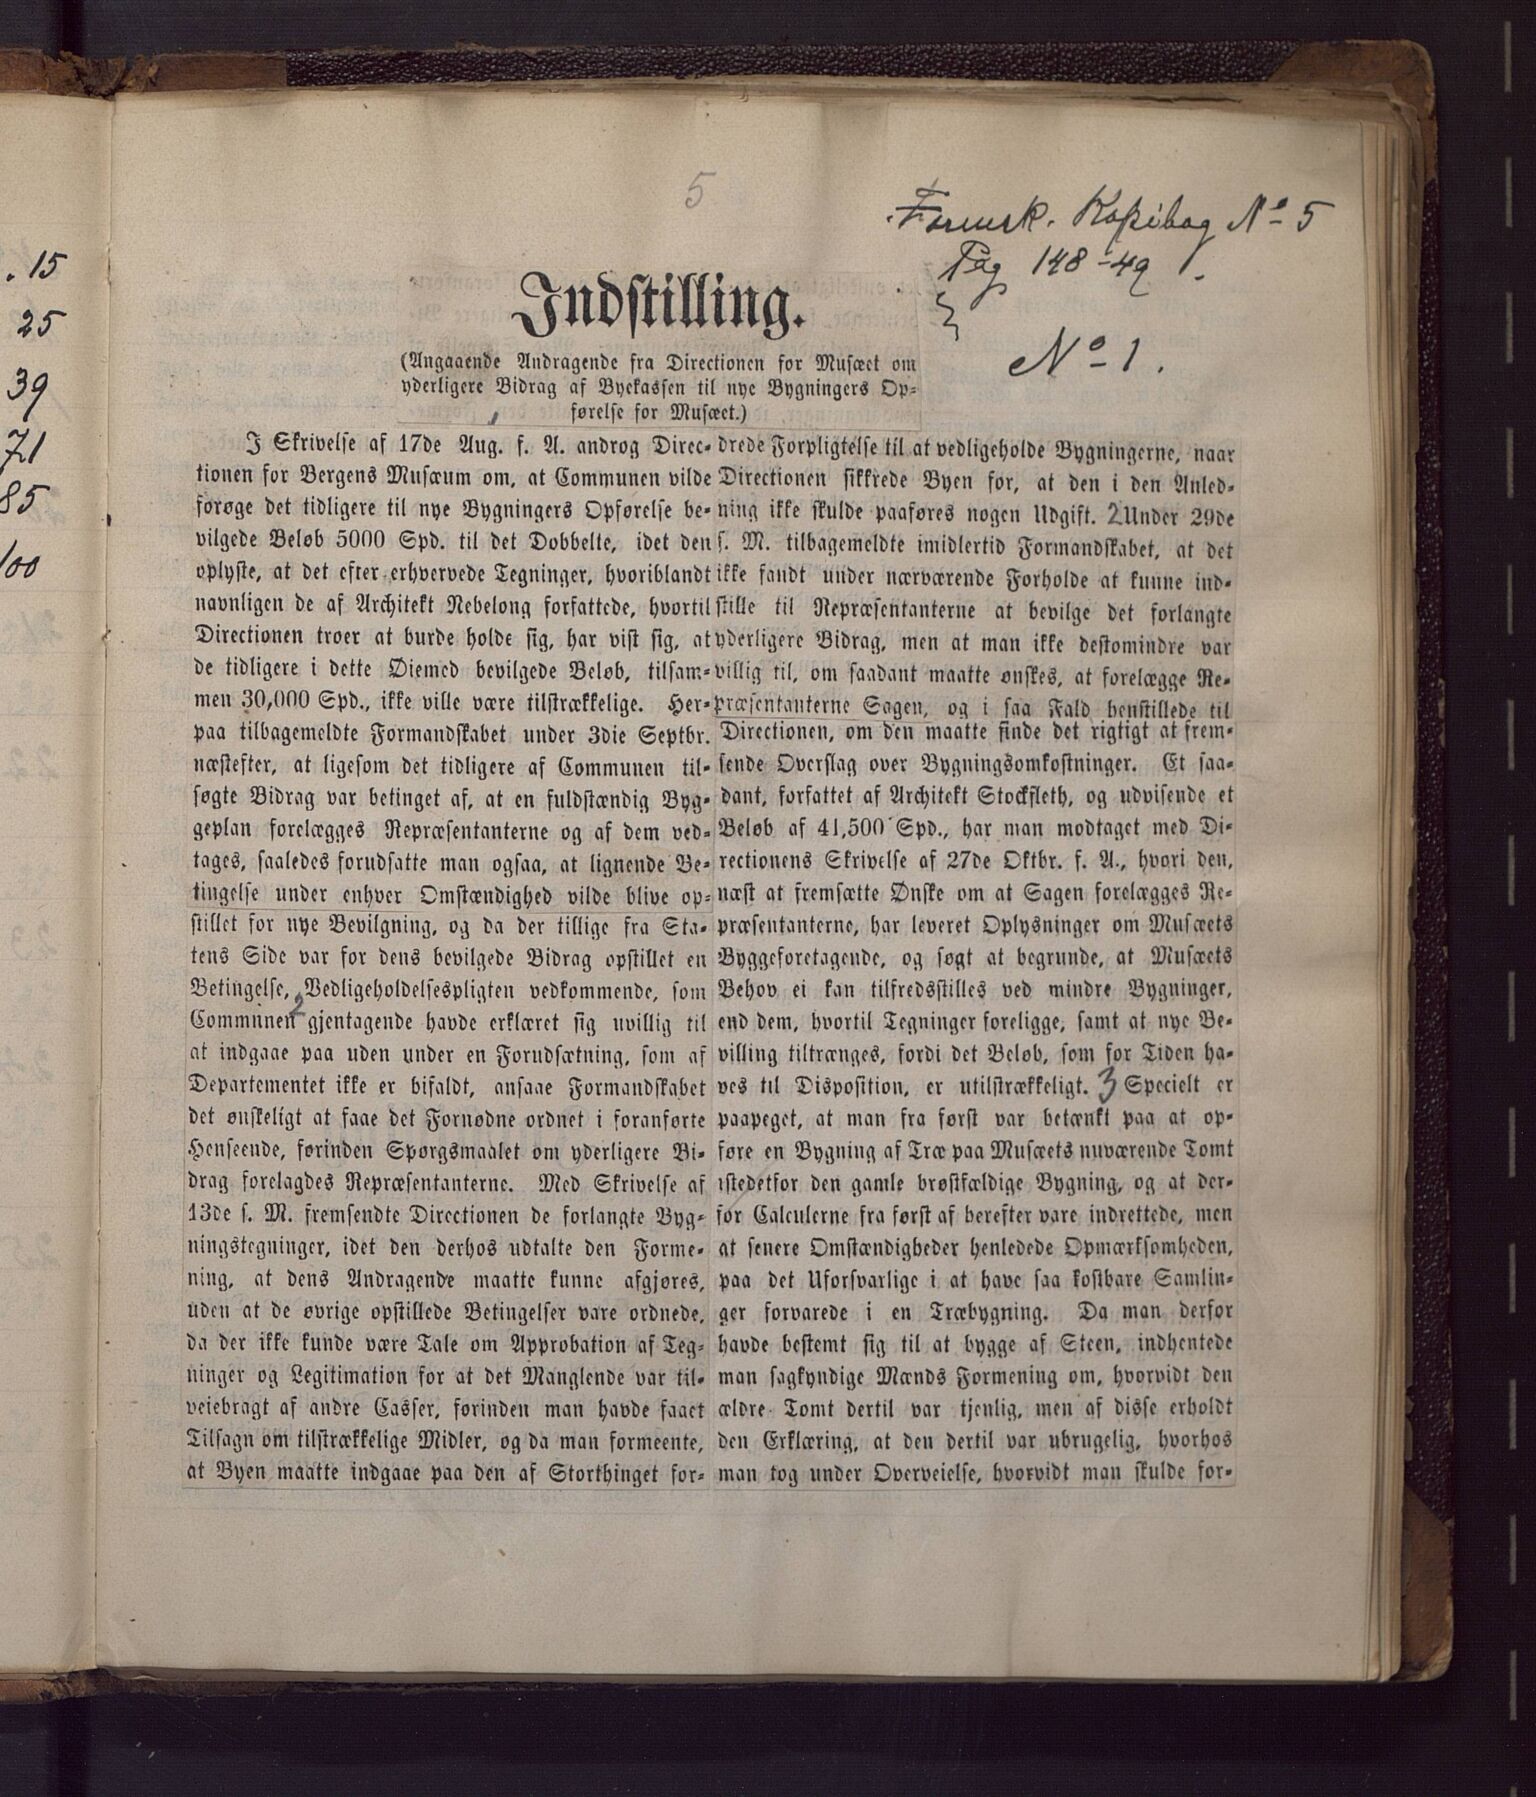 . 15
25
39
71
85
100
5
Formsk. Kopibog No 5
Pag 148-49.
No 1.
Indstilling.
(Angaaende Andragende fra Directionen for Musæet om
yderligere Bidrag af Byekassen til nye Bygningers Op-
førelse for Musæet.)
I Skrivelse af 17de Aug. f. A. androg Direc-
tionen for Bergens Musæum om, at Communen vilde
forøge det tidligere til nye Bygningers Opførelse be-
vilgede Beløb 5000 Spd. til det Dobbelte, idet den
oplyste, at det efter erhvervede Tegninger, hvoriblandt
navnligen de af Architekt Nebelong forfattede, hvortil
Directionen troer at burde holde sig, har vist sig, at
de tidligere i dette Øiemed bevilgede Beløb, tilsam-
men 30,000 Spd., ikke ville være tilstrækkelige. Her-
paa tilbagemeldte Formandskabet under 3die Septbr.
næstefter, at ligesom det tidligere af Communen til-
søgte Bidrag var betinget af, at en fuldstændig Byg-
geplan forelægges Repræsentanterne og af dem ved-
tages, saaledes forudsatte man ogsaa, at lignende Be-
tingelse under enhver Omstændighed vilde blive op-
stillet for nye Bevilgning, og da der tillige fra Sta-
tens Side var for dens bevilgede Bidrag opstillet en
Betingelse, Vedligeholdelsespligten vedkommende, som
2
Communen gjentagende havde erklæret sig uvillig til
at indgaae paa uden under en Forudsætning, som af
Departementet ikke er bifaldt, ansaae Formandskabet
det ønskeligt at faae det Fornødne ordnet i foranførte
Henseende, førinden Spørgsmaalet om yderligere Bi-
drag forelagdes Repræsentanterne. Med Skrivelse af
13de s. M. fremsendte Directionen de forlangte Byg-
ningstegninger, idet den derhos udtalte den Forme-
ning, at dens Andragende maatte kunne afgjøres,
uden at de øvrige opstillede Betingelser vare ordnede,
da der ikke kunde være Tale om Approbation af Teg-
ninger og Legitimation for at det Manglende var til-
veiebragt af andre Casser, førinden man havde faaet
Tilsagn om tilstrækkelige Midler, og da man formeente,
at Byen maatte indgaae paa den af Storthinget for-
drede Forpligtelse til at vedligeholde Bygningerne, naar
Directionen sikkrede Byen for, at den i den Anled-
ning ikke skulde paaføres nogen Udgift. 2 Under 29de
s. M. tilbagemeldte imidlertid Formandskabet, at det
ikke fandt under nærværende Forholde at kunne ind-
stille til Repræsentanterne at bevilge det forlangte
yderligere Bidrag, men at man ikke destomindre var
villig til, om saadant maatte ønskes, at forelægge Re-
præsentanterne Sagen, og i saa Fald henstillede til
Directionen, om den maatte finde det rigtigt at frem-
sende Overslag over Bygningsomkostninger. Et saa-
dant, forfattet af Architekt Stockfleth, og udvisende et
Beløb af 41,500 Spd., har man modtaget med Di-
rectionens Skrivelse af 27de Oktbr. f. A., hvori den,
næst at fremsætte Ønske om at Sagen forelægges Re-
præsentanterne, har leveret Oplysninger om Musæets
Byggeforetagende, og søgt at begrunde, at Musæets
Behov ei kan tilfredsstilles ved mindre Bygninger,
end dem, hvortil Tegninger foreligge, samt at nye Be-
villing tiltrænges, fordi det Beløb, som for Tiden ha-
ves til Disposition, er utilstrækkeligt. 3 Specielt er
paapeget, at man fra først var betænkt paa at op-
føre en Bygning af Træ paa Musæets nuværende Tomt
istedetfor den gamle brøstfældige Bygning, og at der-
for Calculerne fra først af herefter vare indrettede, men
at senere Omstændigheder henledede Opmærksomheden,
paa det Uforsvarlige i at have saa kostbare Samlin-
ger forvarede i en Træbygning. Da man derfor
havde bestemt sig til at bygge af Steen, indhentede
man sagkyndige Mænds Formening om, hvorvidt den
ældre Tomt dertil var tjenlig, men af disse erholdt
den Erklæring, at den dertil var ubrugelig, hvorhos
man tog under Overveielse, hvorvidt man skulde for-